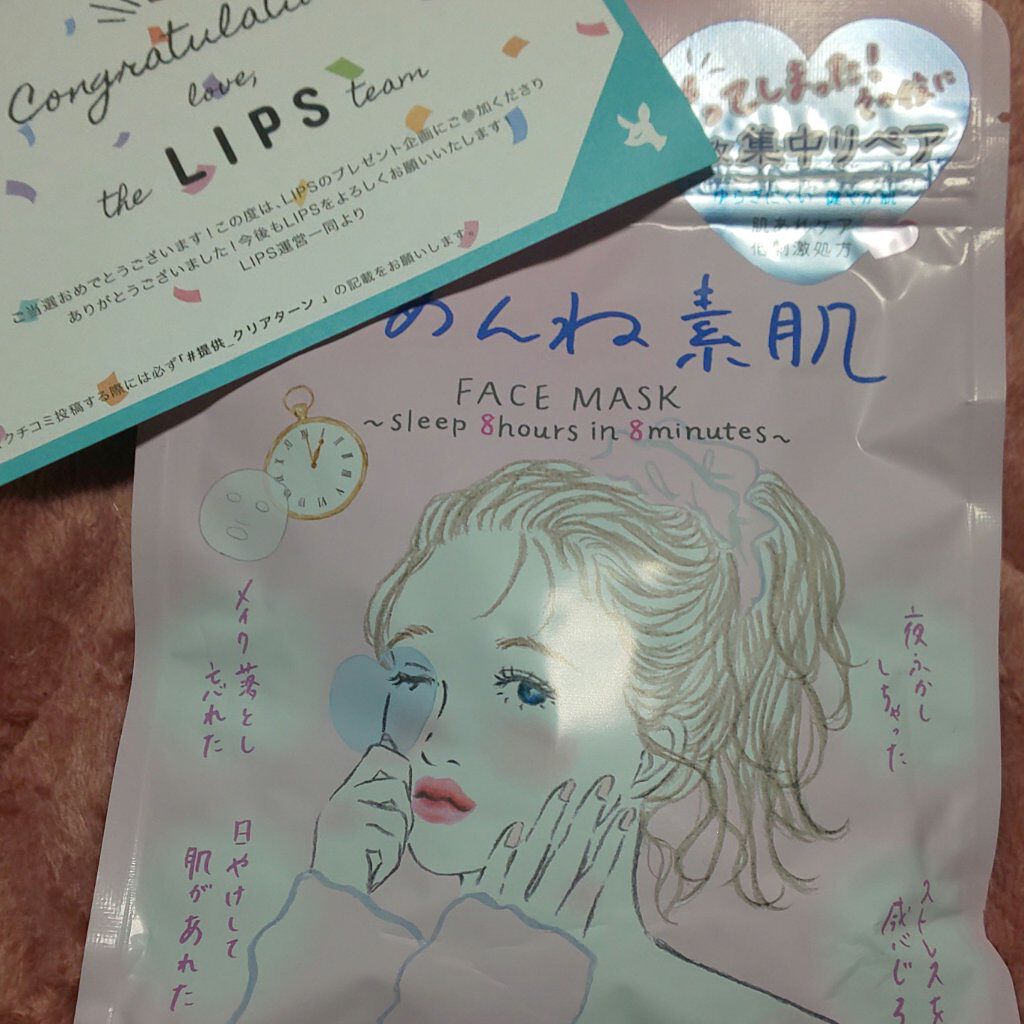 Congratulati
love,
the LIPS team
ご当選おめでとうございます！この度は、LIPSのプレゼント企画にご参加くださり
ありがとうございました！今後もLIPSをよろしくお願いいたします！
LIPS運営一同より
クチコミ投稿する際には必ず「#提供_クリアターン」の記載をお願いします。
ってしまった！その夜に
集中リペア
ゆらぎにくい 健やか肌
肌あれケア
低刺激処方
めんね素肌
FACE MASK
~sleep 8hours in 8minutes~
メイク落とし
忘れた
夜ふかし
しちゃった
日やけして
肌があれた
ストレスを
感じる